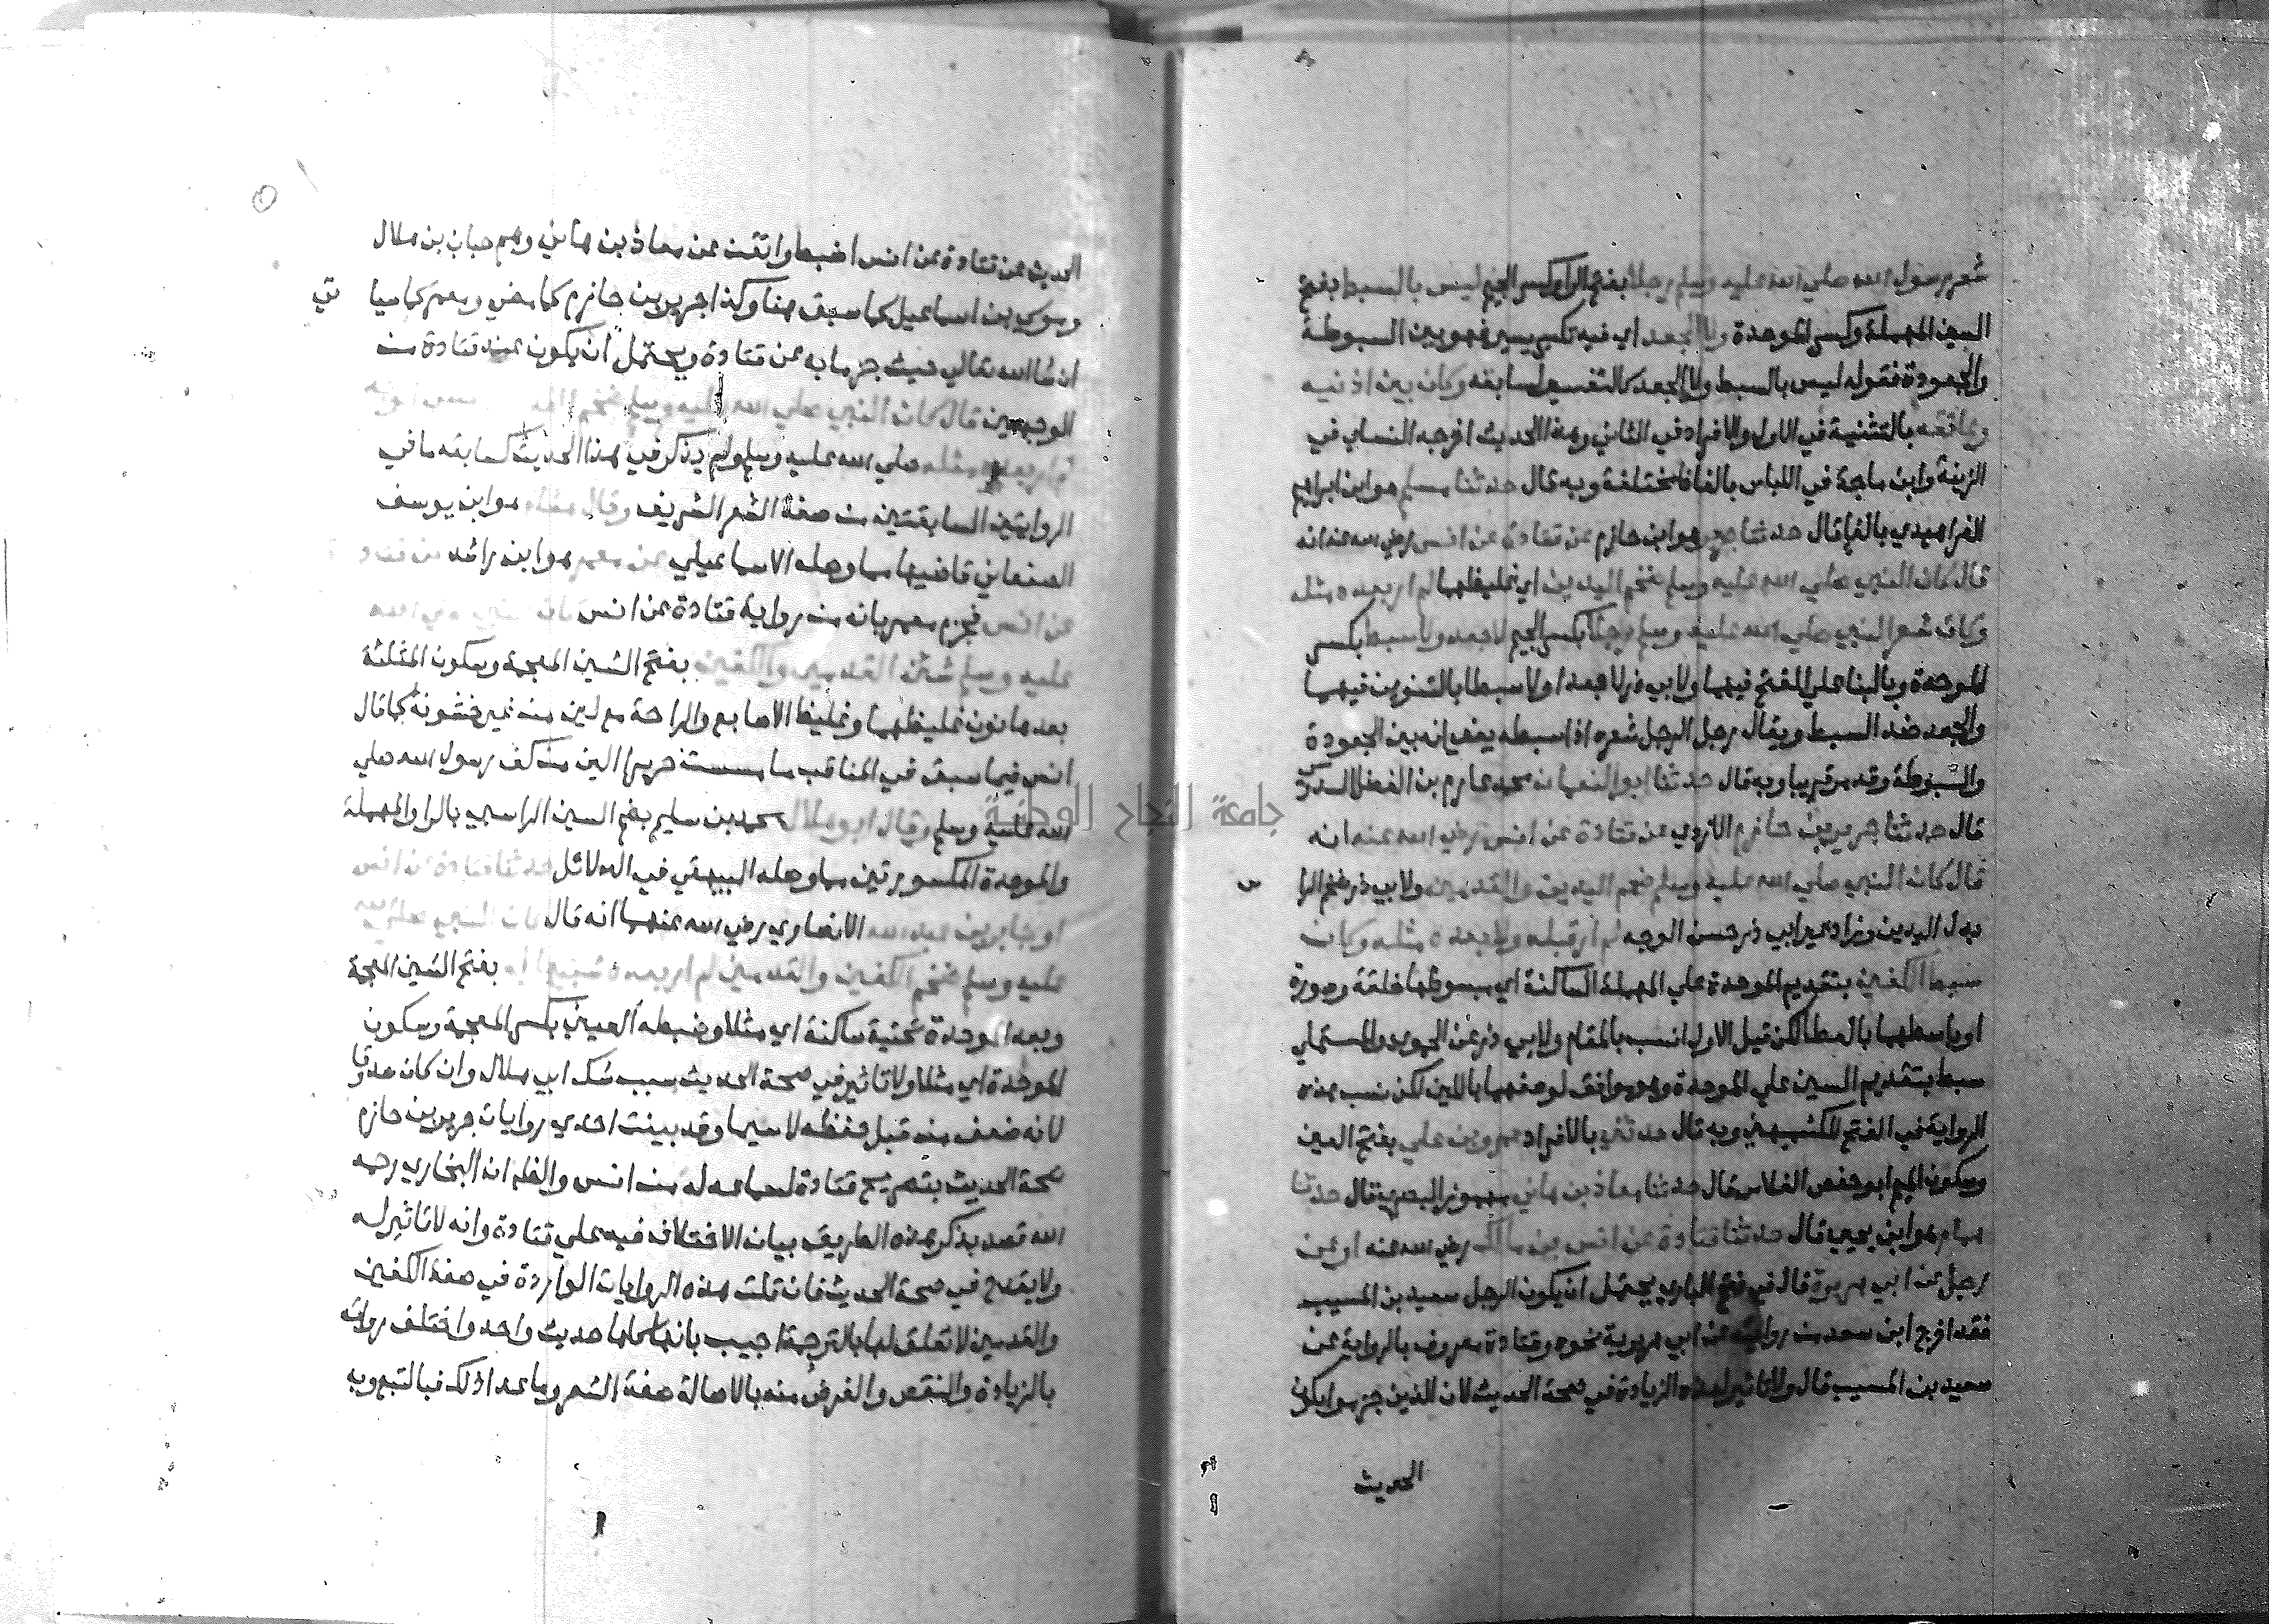 شعر رسول الله صلي الله عليه وسلم رجلا بفتح الرا وكسر الجيم ليس بالسبط بفتح
السين المهملة وكسر الموحدة ولا الجعد اي فيه تكسر يسير فهو بين السبوطة
والجعودة فقوله ليس بالسبط ولا الجعد كالتفسير لسابقه وكان بين اذنيه
وعاتقه بالتثنية في الاول والافراد في الثاني وهذا الحديث اخرجه النساي في
الزينة وابن ماجة في اللباس بالفاظ مختلفة وبه قال حدثنا مسلم هو ابن ابراهيم
الفراهيدي بالفا قال حدثنا جرير هو ابن حازم عن قتادة عن انس رضي الله عنه انه
قال كان النبي صلي الله عليه وسلم ضخم اليدين اي غليظهما لم ار بعده مثله
وكان شعر النبي صلي الله عليه وسلم رجلا بكسر الجيم لا جعد ولا سبط بكسر
الموحدة وبالبنا علي الفتح فيهما ولابي ذر لا جعدا ولا سبطا بالتنوين فيهما
والجعد ضد السبط ويقال رجل الرجل شعره اذا سبطه يعني انه بين الجعودة
والسبوطة وقد مر قريبا وبه قال حدثنا ابو النعمان محمد عارم بن الفضل السدوسي
قال حدثنا جرير بن حازم الازدي عن قتادة عن انس رضي الله عنه انه
قال كان النبي صلي الله عليه وسلم ضخم اليدين والقدمين ولابي ذر ضخم الرا
س
بدل اليدين وزاد غير ابي ذر حسن الوجه لم ار قبله ولا بعده مثله وكان
سبط الكفين بتقديم الموحدة علي المهملة الساكنة اي مبسوطهما خلقة وصورة
او باسطهما بالعطا لكن قيل الاول انسب بالمقام ولابي ذر عن الحموي والمستملي
سبط بتقديم السين علي الموحدة وهو موافق لوصفهما باللين لكن نسب هذه
الرواية في الفتح للكشميهني وبه قال حدثني بالافراد عمرو بن علي بفتح العين
وسكون الميم ابو حفص الفلاس قال حدثنا معاذ بن هاني البصري قال حدثنا
همام هو ابن يحيي قال حدثنا قتادة عن انس بن مالك رضي الله عنه او عن
رجل عن ابي هريرة قال في فتح الباري يحتمل ان يكون الرجل سعيد بن المسيب
فقد اخرج ابن سعد من روايته عن ابي هريرة نحوه وقتادة معروف بالرواية عن
سعيد بن المسيب قال ولا تاثير لهذه الزيادة في صحة الحديث لان الذين جزموا بكون
الحديث
الحديث عن قتادة عن انس اضبط واتقن من معاذ بن هاني وهم حبان بن هلال
وموسي بن اسماعيل كما سبق هنا وكذا جرير بن حازم كما مضي ومعمر كما سيا
تي
ان شا الله تعالي حيث جزما به عن قتادة ويحتمل ان يكون عند قتادة من
الوجهين قال كان النبي صلي الله عليه وسلم ضخم القدمين حسن الوجه
لم ار بعده مثله صلي الله عليه وسلم ولم يذكر في هذا الحديث كسابقه ما في
الروايتين السابقتين من صفة الشعر الشريف وقال هشام هو ابن يوسف
الصنعاني قاضيها مما وصله الاسماعيلي عن معمر هو ابن راشد عن قتادة
عن انس فجزم معمر بانه من رواية قتادة عن انس كان النبي صلي الله
عليه وسلم شثن القدمين والكفين بفتح الشين المعجمة وسكون المثلثة
بعدها نون غليظهما وغليظ الاصابع والراحة مع لين من غير خشونة كما قال
انس فيما سبق في المناقب ما مسست حريرا الين من كف رسول الله صلي
الله عليه وسلم وقال ابو هلال محمد بن سليم بضم السين الراسبي بالرا والمهملة
والموحدة المكسورتين مما وصله البيهقي في الدلائل حدثنا قتادة عن انس
او جابر بن عبد الله الانصاري رضي الله عنهما انه قال كان النبي صلي الله
عليه وسلم ضخم الكفين والقدمين لم ار بعده شبيها له بفتح الشين المعجمة
وبعد الموحدة تحتية ساكنة اي مثلا وضبطه العيني بكسر المعجمة وسكون
الموحدة اي مثلا ولا تاثير في صحة الحديث بسبب شك ابي هلال وان كان صدوقا
لانه ضعف من قبل حفظه لا سيما وقد بينت احدي روايات جرير بن حازم
صحة الحديث بتصريح قتادة لسماعه له من انس والظاهر ان البخاري رحمه
الله قصد بذكر هذه الطريق بيان الاختلاف فيه علي قتادة وانه لا تاثير له
ولا يقدح في صحة الحديث فان قلت هذه الروايات الواردة في صفة الكفين
والقدمين لا تعلق لها بالترجمة اجيب بانها كلها حديث واحد واختلف رواته
بالزيادة والنقص والغرض منه بالاصالة صفة الشعر وما عدا ذلك فبالتبع وبه
جامعة النجاح الوطنية